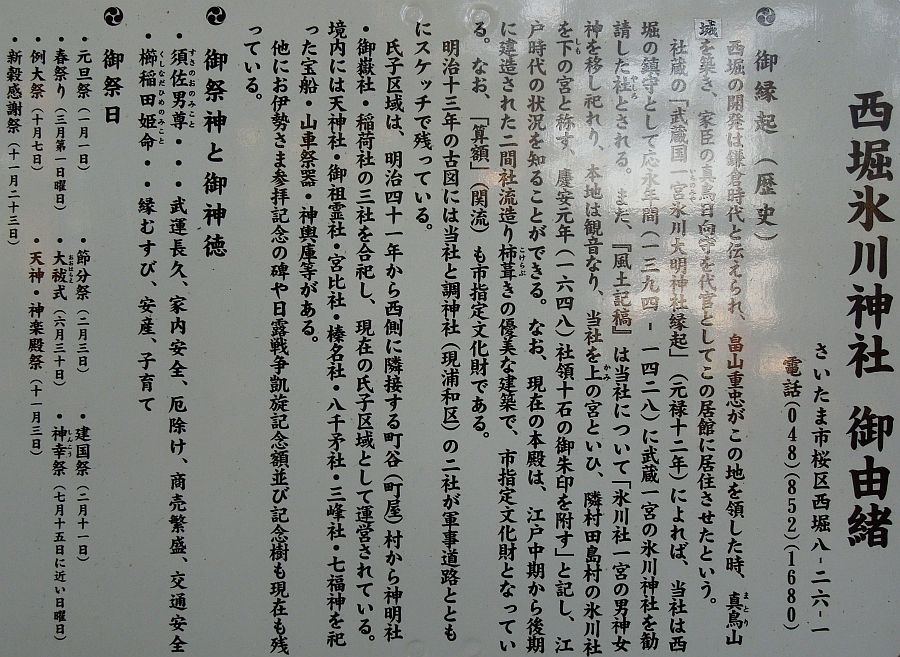 西堀氷川神社 御由緒
さいたま市桜区西堀八-二六-一
電話(048)(852)(1680)
御縁起 (歴史)
西堀の開発は鎌倉時代と伝えられ、畠山重忠がこの地を領した時、真鳥山
まとり
城を築き、家臣の真鳥日向守を代官としてこの居館に居住させたという。
社蔵の「武蔵国一宮氷川大明神社縁起」(元禄十二年)によれば、当社は西
堀の鎮守として応永年間(一三九四-一四二八)に武蔵一宮の氷川神社を勧
請した社とされる。また、『風土記稿』は当社について「氷川社一宮の男神女
やしろ
神を移し祀れり、本地は観音なり、当社を上の宮といひ、隣村田島村の氷川社
かみ
を下の宮と称す、慶安元年(一六四八)社領十石の御朱印を附す」と記し、江
しも
戸時代の状況を知ることができる。なお、現在の本殿は、江戸中期から後期
に建造された二間社流造り柿葺きの優美な建築で、市指定文化財となってい
こけらぶ
る。なお、「算額」(関流)も市指定文化財である。
明治十三年の古図には当社と調神社(現浦和区)の二社が軍事道路ととも
にスケッチで残っている。
氏子区域は、明治四十一年から西側に隣接する町谷(町屋)村から神明社
・御嶽社・稲荷社の三社を合祀し、現在の氏子区域として運営されている。
境内には天神社・御祖霊社・宮比社・榛名社・八千矛社・三峰社・七福神を祀
った宝船・山車祭器・神輿庫等がある。
他にお伊勢さま参拝記念の碑や日露戦争凱旋記念額並び記念樹も現在も残
っている。
御祭神と御神徳
・須佐男尊・・武運長久、家内安全、厄除け、商売繁盛、交通安全
すさのおのみこと
・櫛稲田姫命・・縁むすび、安産、子育て
くしなだひめのみこと
御祭日
・元旦祭(一月一日) ・節分祭(二月三日) ・建国祭(二月十一日)
・春祭り(三月第一日曜日) ・大祓式(六月三十日) ・神幸祭(七月十五日に近い日曜日)
おおはらえ しんこう
・例大祭(十月七日) ・天神・神楽殿祭(十一月三日)
・新穀感謝祭(十一月二十三日)